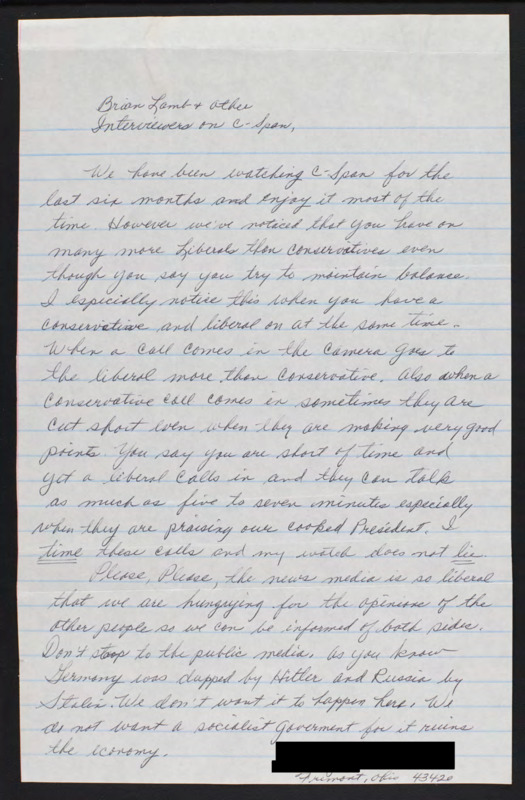 Brian Lamb + other
Interviewers on C-Span,
We have been watching C-Span for the
last six months and enjoy it most of the
time. However we've noticed that you have on
many more Liberals than conservatives even
though you say you try to maintain balance.
I especially notice this when you have a
conservative and liberal on at the same time.
When a call comes in the camera goes to
the liberal more than conservative. Also when a
conservative call comes in sometimes they are
cut short even when they are making very good
points. You say you are short of time and
yet a liberal calls in and they can talk
as much as five to seven minutes especially
when they are praising our cooked President. I
time these calls and my watch does not lie.
Please, Please, the news media is so liberal
that we are hungrying for the opinions of the
other people so we can be informed of both sides.
Don't stoop to the public media. As you know
Germany was dupped by Hitler and Russia by
Stalin. We don't want it to happen here. We
do not want a socialist goverment for it ruins
the economy.
Fremont, Ohio 43420